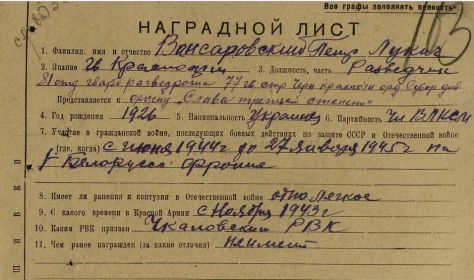 Все графы заполнять полностью
НАГРАДНОЙ ЛИСТ
1. Фамилия, имя и отчество Вонсаровский Петр Лукич
2. Звание Гв Красноарм 3. Должность, часть Разведчик
81 отд гвард разведрота 77 гв стр Черн Краснозн орд Сувор див
Представляется к ордену „Слава третьей степени"
4. Год рождения 1926 5. Национальность Украинец 6. Партийность Чл ВЛКСМ
7. Участие в гражданской войне, последующих боевых действиях по защите СССР и Отечественной
(где, когда) с июня 1944г до 27 января 1945г на
1 Белорусс фронте
8. Имеет ли ранения и контузии в Отечественной войне одно легкое
9. С какого времени в Красной Армии с Ноября 1943г
10. Каким РВК призван Чкаловским РВК
11. Чем ранее награжден (за какие отличия) не имеет